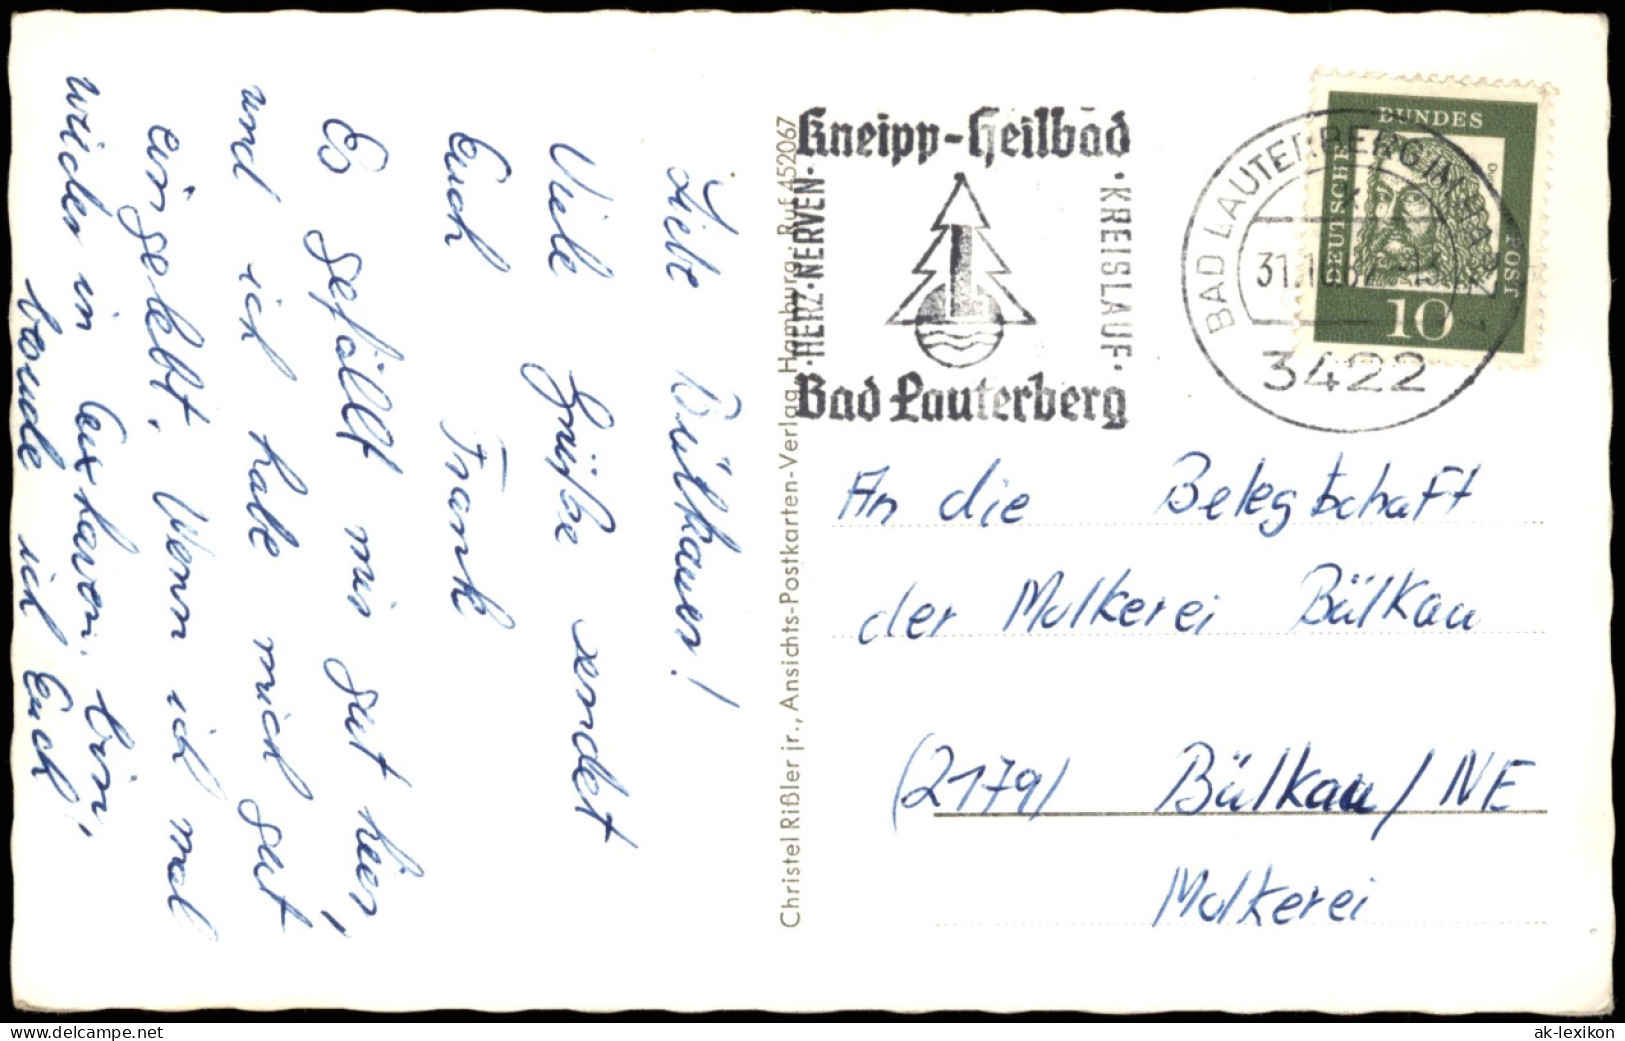 Liebe Bülkauer!
Viele Grüße sendet
Euch Frank
Es gefällt mir gut hier,
und ich habe mich gut
eingelebt. Wenn ich mal
wieder in Cuxhaven bin,
werde ich Euch
Christel Rißler jr., Ansichts-Postkarten-Verlag, Hamburg, Ruf 452067
Kneipp-Heilbad
·HERZ·NERVEN·
·KREISLAUF·
Bad Lauterberg
BAD LAUTERBERG IM HARZ
31.10.
3422
DEUTSCHE
BUNDES
POST
10
An die Belegschaft
der Molkerei Bülkau
(2179) Bülkau/NE
Molkerei
ak-lexikon